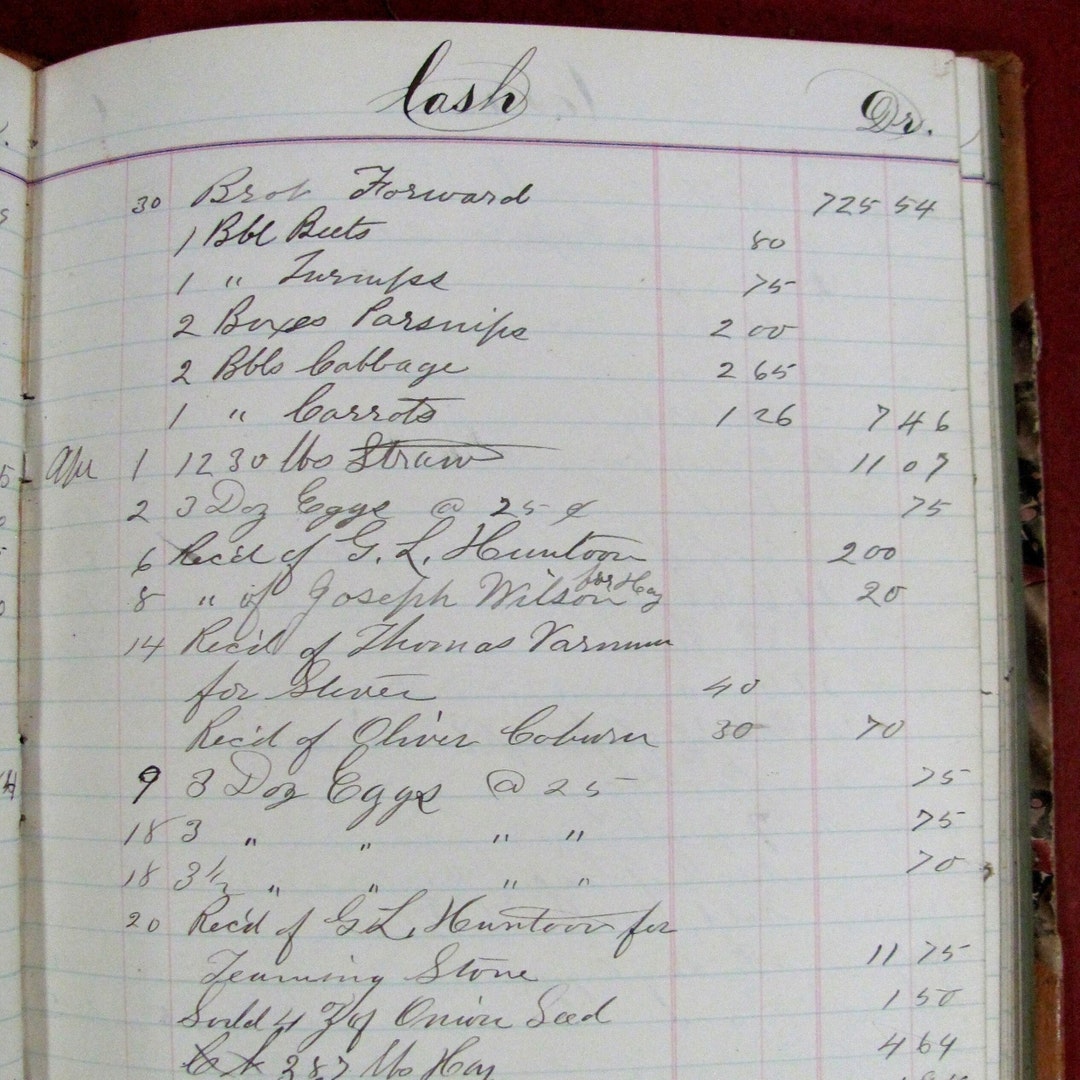 Cash Dr.
30 Brot Forward 725 54
1 Bbl Beets 80
1 " Turnips 75
2 Boxes Parsnips 2 00
2 Bbls Cabbage 2 65
1 " Carrots 1 26 7 46
Apr 1 1230 lbs Straw 11 07
2 3 Doz Eggs @ 25 ¢ 75
6 Rec'd of G. L. Huntoon 200
8 " of Joseph Wilson for Hay 20
14 Rec'd of Thomas Varnum
for 40
Rec'd of Oliver Coburn 30 70
9 3 Doz Eggs @ 25 75
18 3 " " " " 75
18 3½ " " " " 70
20 Rec'd of G L. Huntoon for
Teaming Stone 11 75
Sold 4 oz of Onion Seed 1 50
287 lbs Hay 4 64